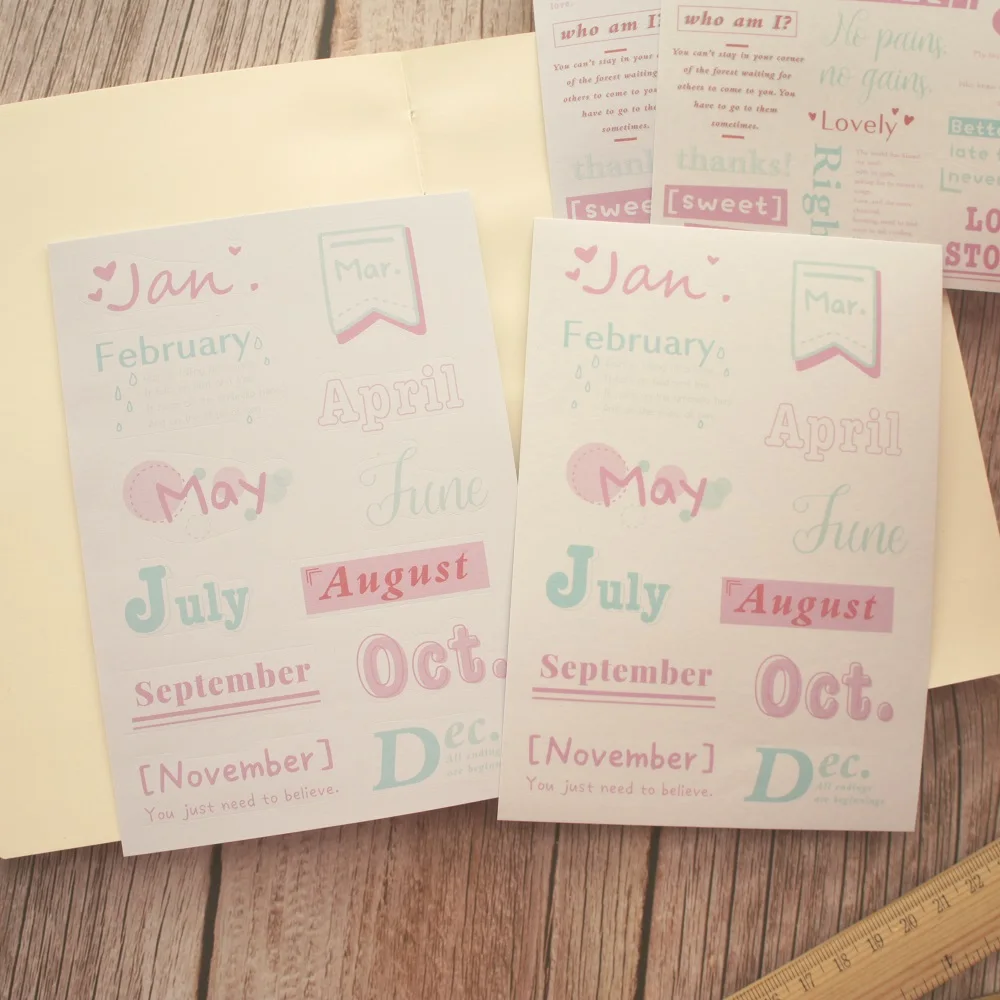 love.
who am I?
You can't stay in your
of the forest waiting
others to come to yo
have to go to th
sometimes.
thank
[swee
who am I?
You can't stay in your corner
of the forest waiting for
others to come to you. You
have to go to them
sometimes.
thanks!
[sweet]
No pains,
no gains.
Lovely
Righ
Bett
late
never
LO
STO
Jan.
Mar.
February
April
May
June
July
August
September
Oct.
[November]
You just need to believe.
Dec.
All endings
are beginnin
Jan.
Mar.
February
April
May
June
July
August
September
Oct.
[November]
You just need to believe.
Dec.
All endings
are beginnings
17 18 19 20 21 22